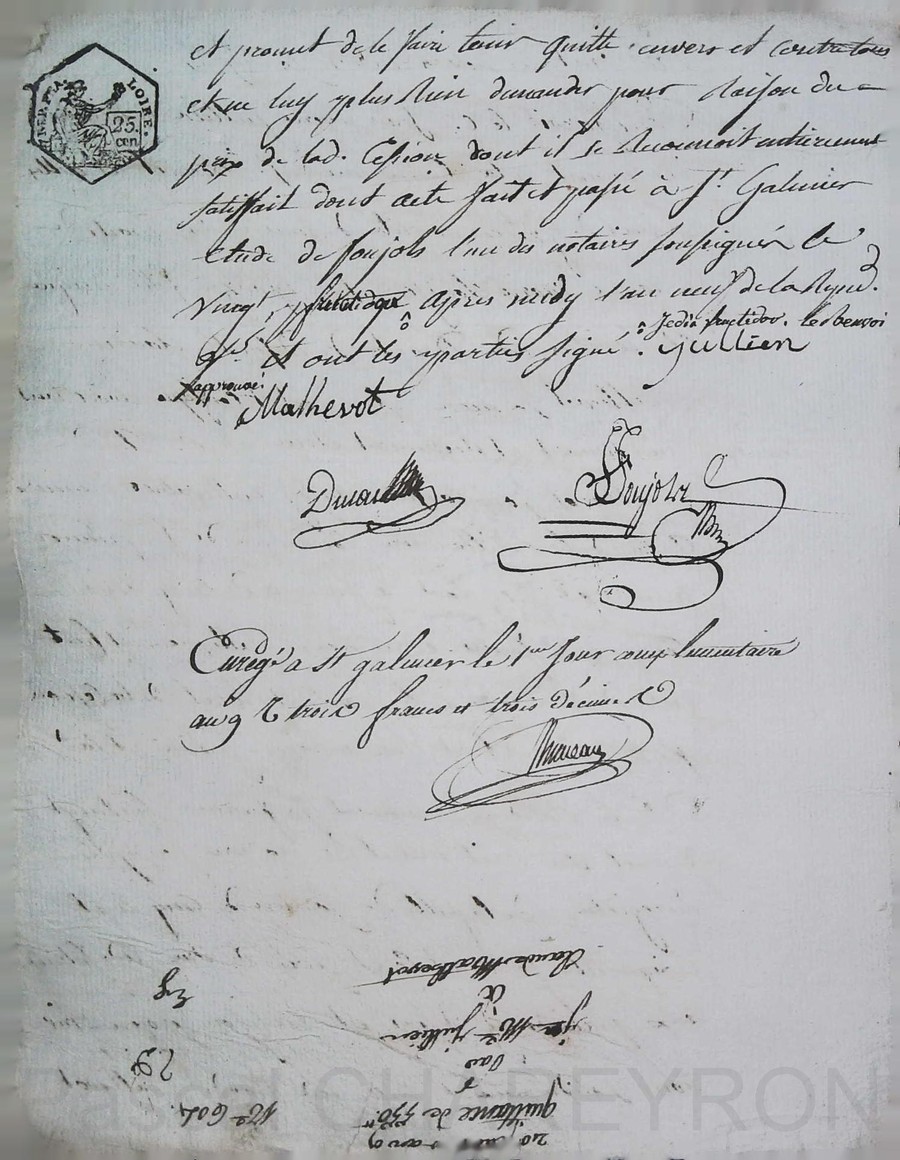 LOIRE.
25.
cen.
et promet de le faire tenir quitte envers et contre tous
et ne luy plus Rien demander pour Raison du
prix de lad. Cession dont il se Reconnoit entierement
satisfait dont acte fait et passé à St. Galmier
Etude de soujols l'un des notaires soussignés le
vingt fructidor après midy l'an neuf de la Repue.
et ont les parties signé. Je dis fructidor. le Renvoi
approuvé. Jullien
Mathevot
Soujols
Enregé a St galmier le 1er Jour complementaire
an 9 R trois francs et trois décimes
20 an 9
quittance de 330tt
N° 604.
par
29
jn Mie Jullien
a
Claude Mathevot